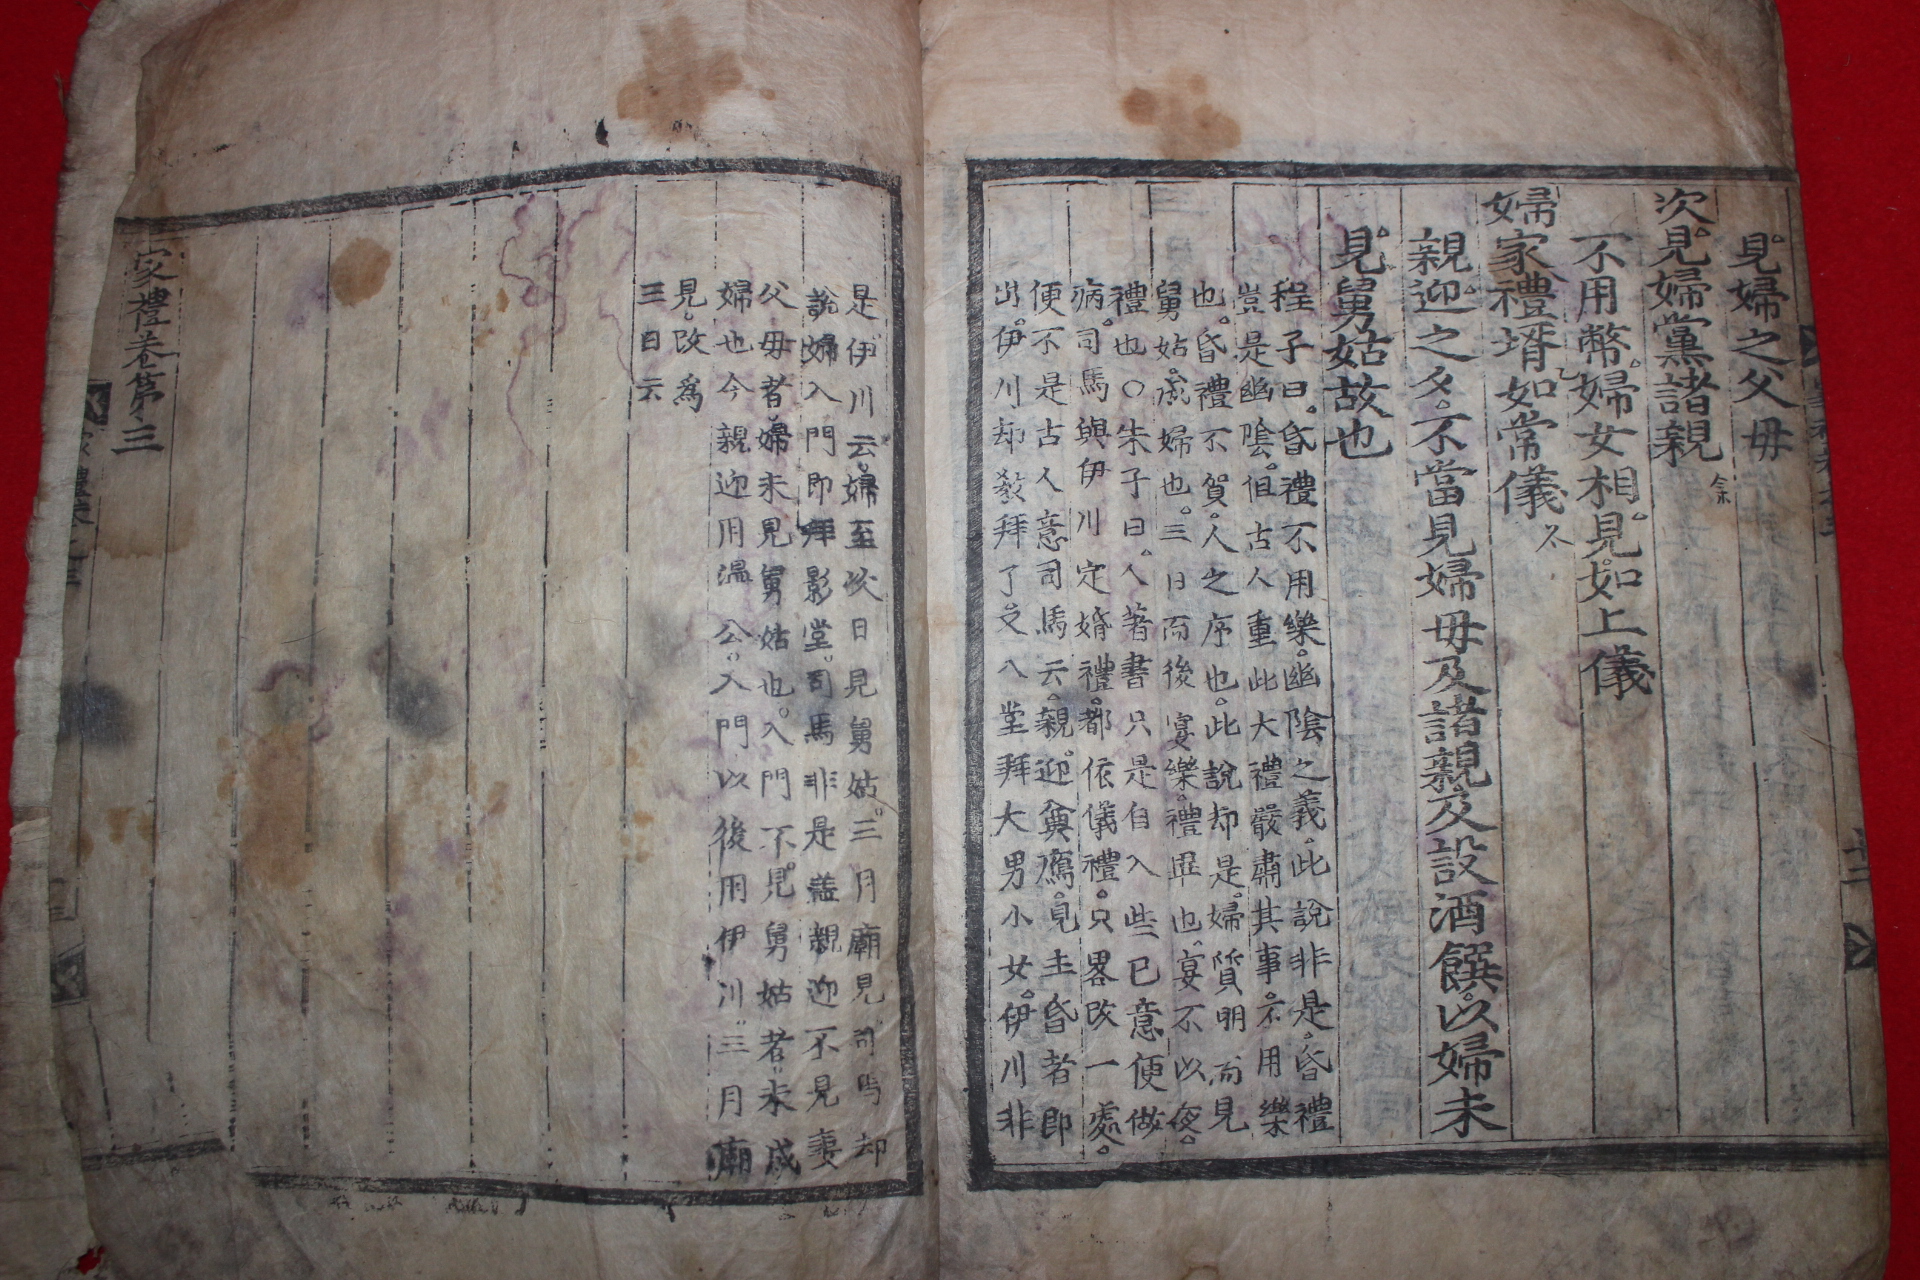 見婦之父毋
次見婦黨諸親
不用幣婦女相見如上儀
婦家禮壻如常儀
親迎之夕不當見婦毋及諸親及設酒饌以婦未
見舅姑故也
程子曰昏禮不用樂幽陰之義此說非是昏禮
豈是幽陰但古人重此大禮嚴肅其事不用樂
也昏禮不賀人之序也此說却是婦質明而見
舅姑成婦也三日而後宴樂禮畢也宴不以夜
禮也○朱子曰人著書只是自入些己意便做
病司馬與伊川定婚禮都依儀禮只畧改一處
便不是古人意司馬云親迎奠鴈見主昏者即
出伊川却敎拜了又入堂拜大男小女伊川非
是伊川云婦至次日見舅姑三月廟見司馬却
說婦入門即拜影堂司馬非是盖親迎不見妻
父母者婦未見舅姑也入門不見舅姑者未成
婦也今親迎用溫公入門以後用伊川三月廟
見改爲
三日云
家禮卷第三